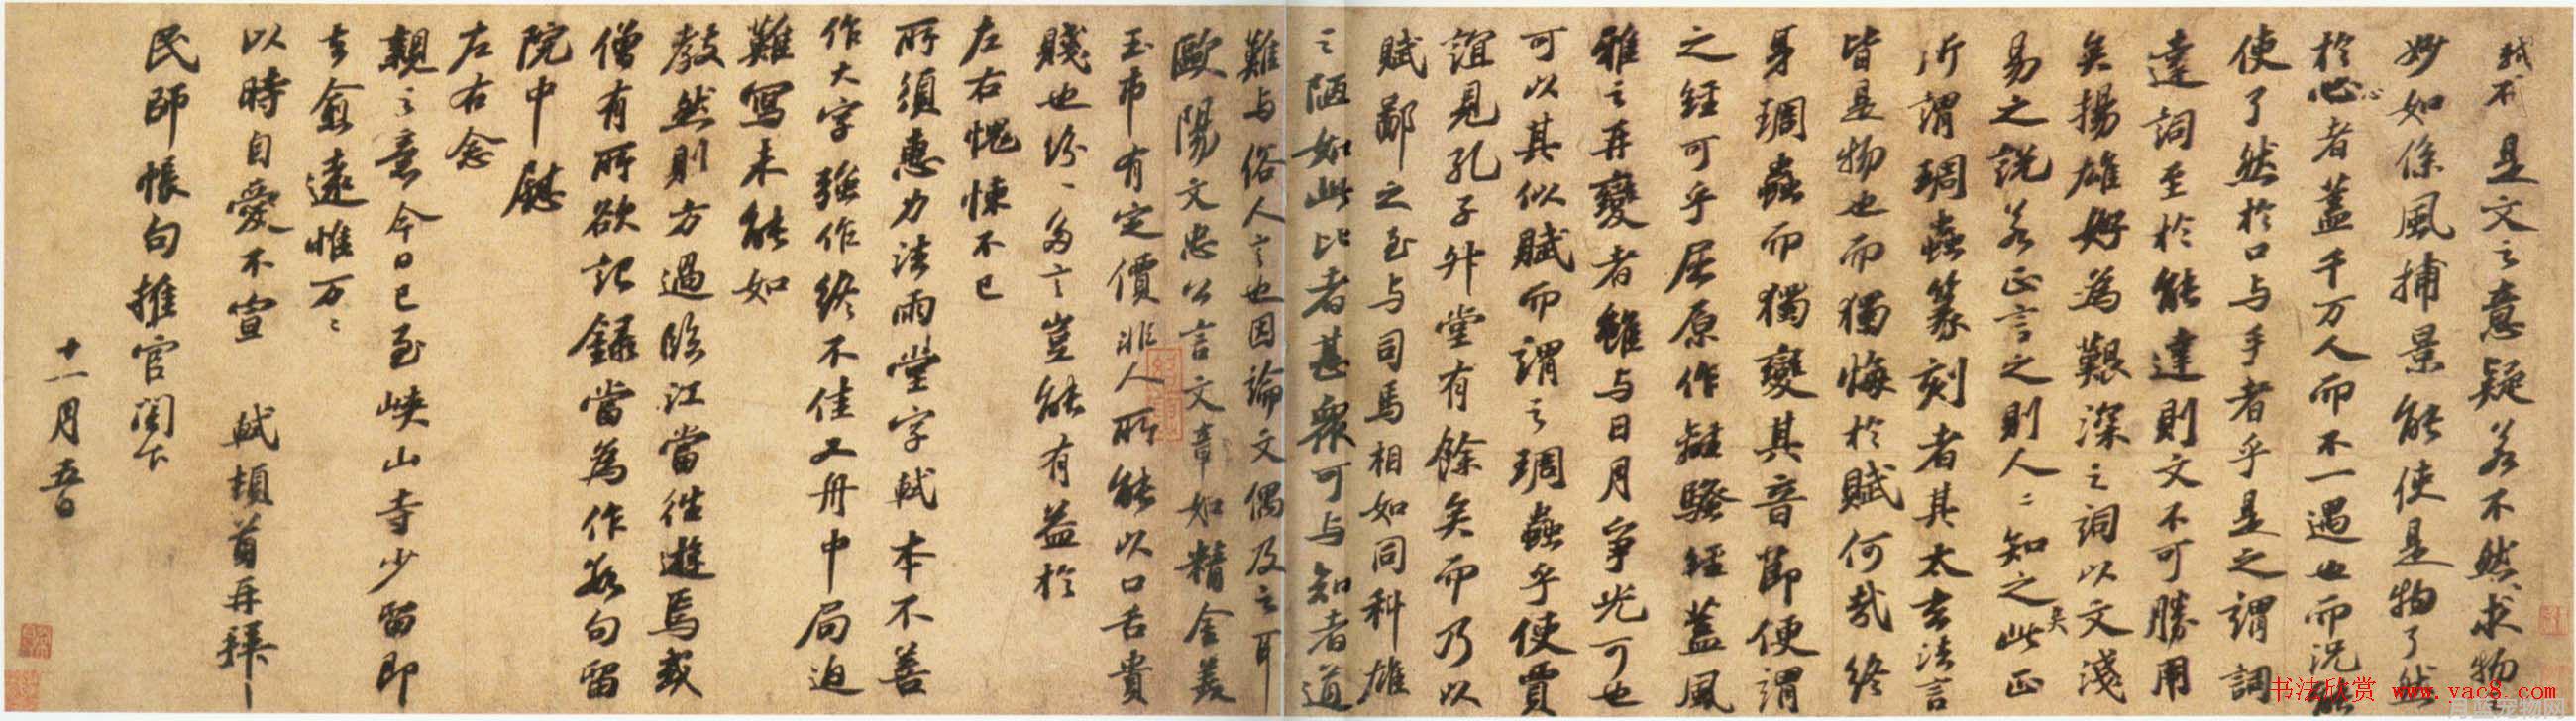 軾不是文之意疑若不然求物之
妙如係風捕景能使是物了然
於心者蓋千万人而不一遇也而況能
使了然於口与手者乎是之謂詞
達詞至於能達則文不可勝用
矣揚雄好為艱深之詞以文淺
易之說若正言之則人〻知之矣此正
所謂琱蟲篆刻者其太玄法言
皆是物也而獨悔於賦何哉終
身琱蟲而獨變其音節便謂
之經可乎屈原作離騷經蓋風
雅之再變者雖与日月爭光可也
可以其似賦而謂之琱蟲乎使賈
誼見孔子升堂有餘矣而乃以
賦鄙之至与司馬相如同科雄
之陋如此比者甚衆可与知者道
難与俗人言也因論文偶及之耳
歐陽文忠公言文章如精金美
玉市有定價非人所能以口舌貴
賤也紛〻多言豈能有益於
左右愧悚不已
所須惠力法雨堂字軾本不善
作大字強作終不佳又舟中局迫
難寫未能如
教然則方過臨江當往遊焉或
僧有所欲記錄當為作數句留
院中慰
左右念
親之意今日已至峽山寺少留即
去愈遠惟万〻
以時自愛不宣 軾頓首再拜
民師帳句推官閣下
十一月五日
书法欣赏 www.vac8.com